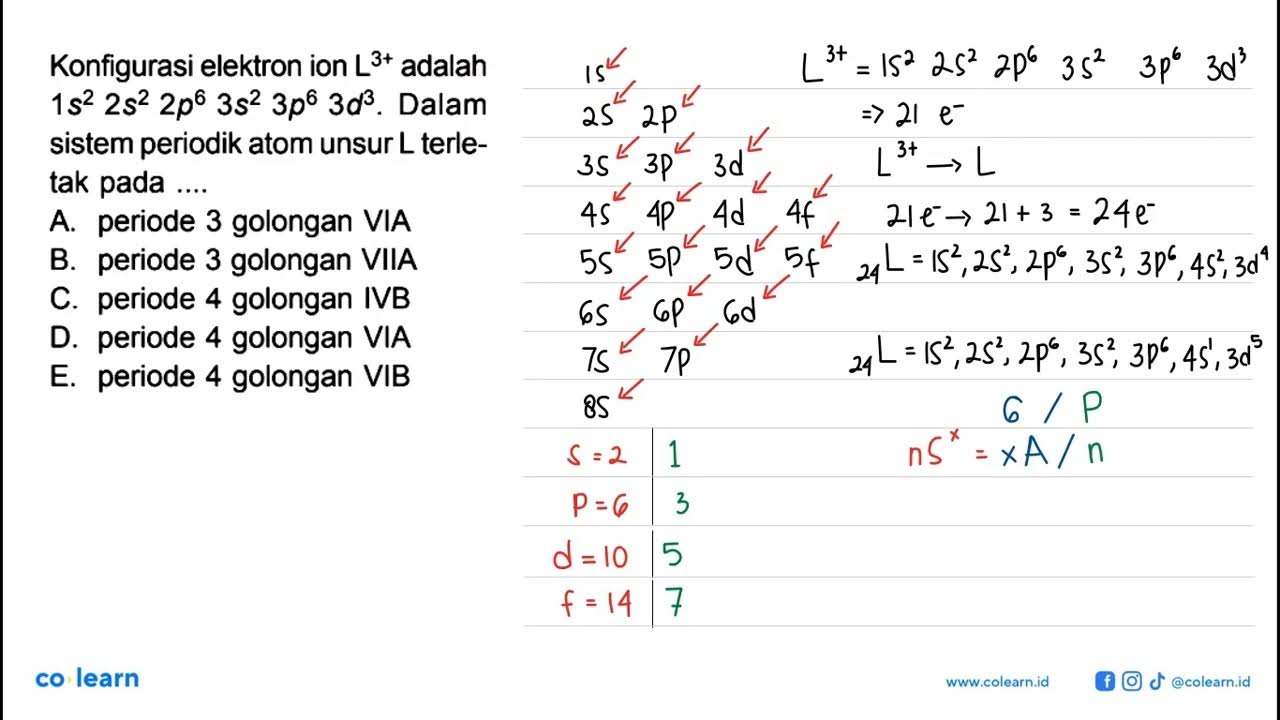 Konfigurasi elektron ion L³⁺ adalah
1s² 2s² 2p⁶ 3s² 3p⁶ 3d³. Dalam
sistem periodik atom unsur L terle-
tak pada ....
A. periode 3 golongan VIA
B. periode 3 golongan VIIA
C. periode 4 golongan IVB
D. periode 4 golongan VIA
E. periode 4 golongan VIB
1s
2s 2p
3s 3p 3d
4s 4p 4d 4f
5s 5p 5d 5f
6s 6p 6d
7s 7p
8s
s = 2 | 1
p = 6 | 3
d = 10 | 5
f = 14 | 7
L³⁺ = 1s² 2s² 2p⁶ 3s² 3p⁶ 3d³
=> 21 e⁻
L³⁺ → L
21e⁻ → 21 + 3 = 24e⁻
₂₄L = 1s², 2s², 2p⁶, 3s², 3p⁶, 4s², 3d⁴
₂₄L = 1s², 2s², 2p⁶, 3s², 3p⁶, 4s¹, 3d⁵
G / P
nSˣ = xA / n
co learn
www.colearn.id
@colearn.id